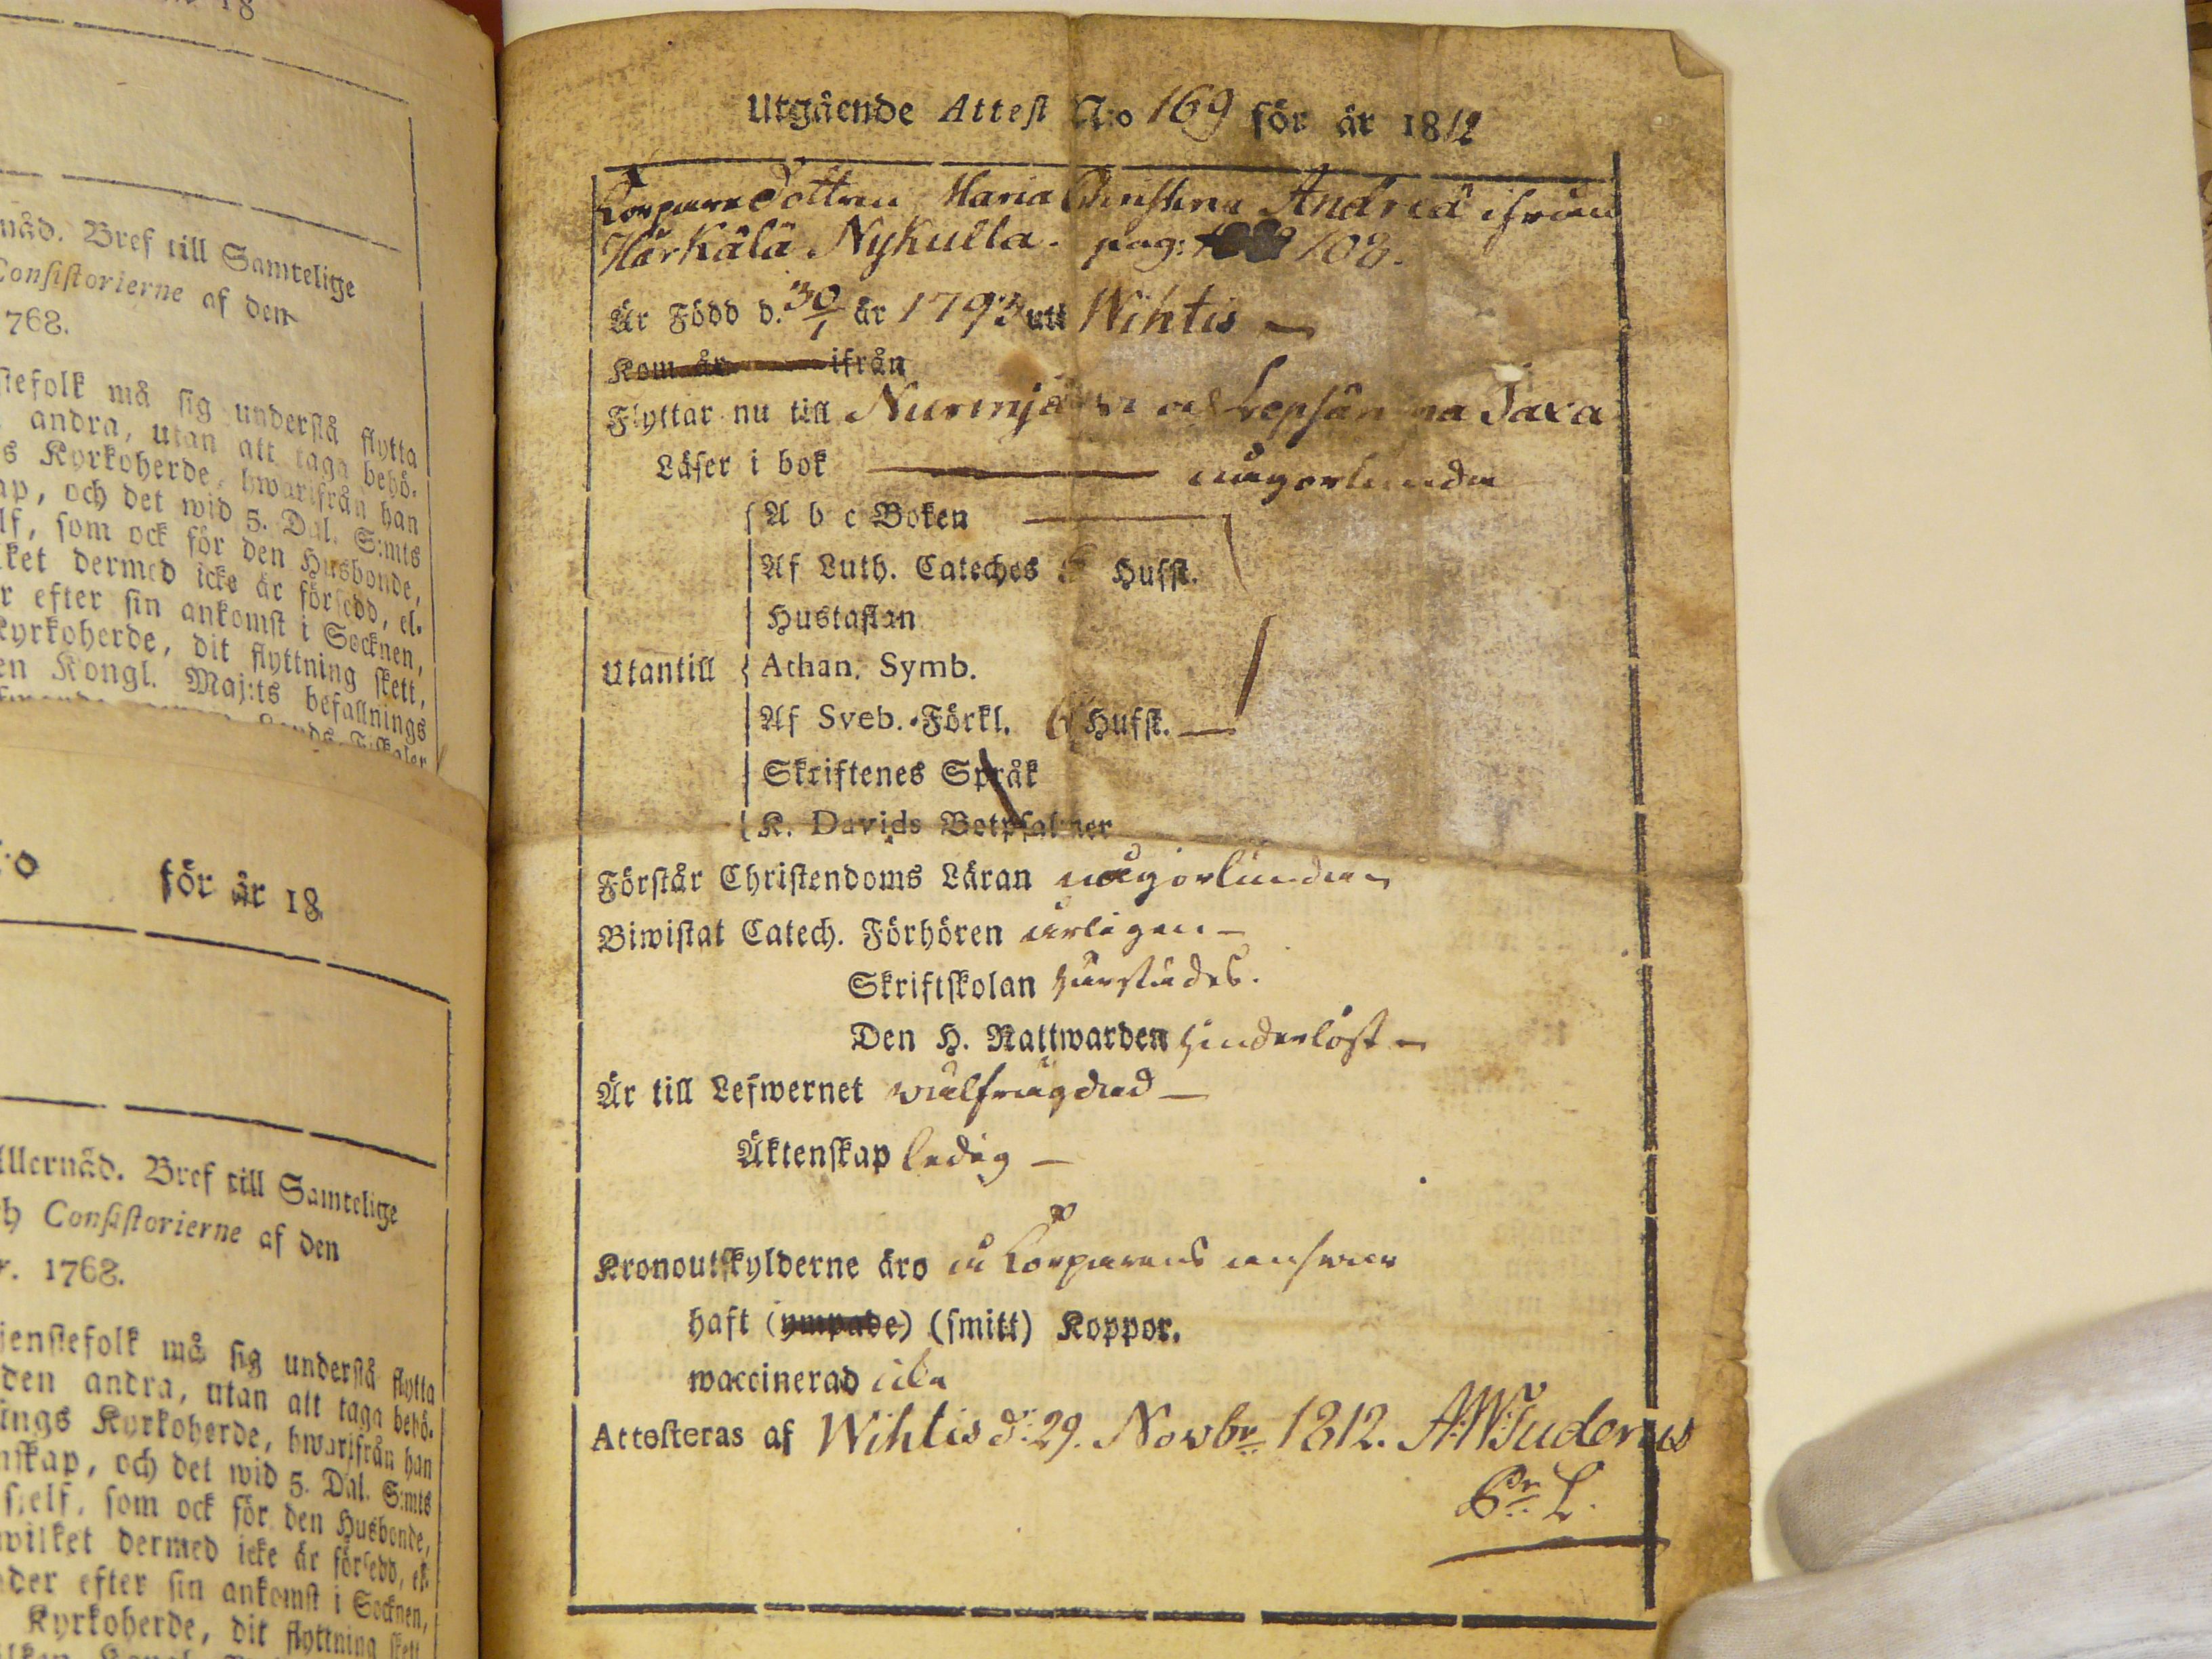 18
nåd. Bref till Samtelige
Consistorierne af den
768.
stefolk må sig understå flytta
andra, utan att taga behö-
s Kyrkoherde, hwarifrån han
ap, och det wid 5. Dal. S:mts
lf, som ock för den Husbonde,
ket dermed icke är försedd, el-
r efter sin ankomst i Socknen,
kyrkoherde, dit flyttning skett,
en Kongl. Maj:ts befallnings
:o för år 18
Allernåd. Bref till Samtelige
h Consistorierne af den
r. 1768.
jenstefolk må sig understå flytta
den andra, utan att taga behö-
ings Kyrkoherde, hwarifrån han
nskap, och det wid 5. Dal. S:mts
sjelf, som ock för den Husbonde,
wilket dermed icke är försedd, el-
der efter sin ankomst i Socknen,
Kyrkoherde, dit flyttning skett
Utgående Attest N:o 169 för år 1812
Torpare Dottren Maria Christina Andreä ifrån
Härkälä Nykulla. pag: 108.
Är Född d. 30/1 år 1793 uti Wihtis
Kom år ifrån
Flyttar nu till Nurmijärvi och Lepsämä Taxa
Läser i bok någorlunda
A b c Boken
Af Luth. Cateches Hufst.
Hustaflan
Utantill Athan. Symb.
Af Sveb. Förkl. 6 Hufst.
Skriftenes Språk
K. Davids Botpsalmer
Förstår Christendoms Läran någorlunda
Biwistat Catech. Förhören årligen
Skriftskolan härstädes.
Den H. Nattwarden hinderlöst
Är till Lefwernet wälfrägdad
Äktenskap ledig
Kronoutskylderne äro å Torparens answar
haft (ympade) (smitt) Koppor.
waccinerad icke
Attesteras af Wihtis d. 29. Novbr 1812. A.W. Tuderus